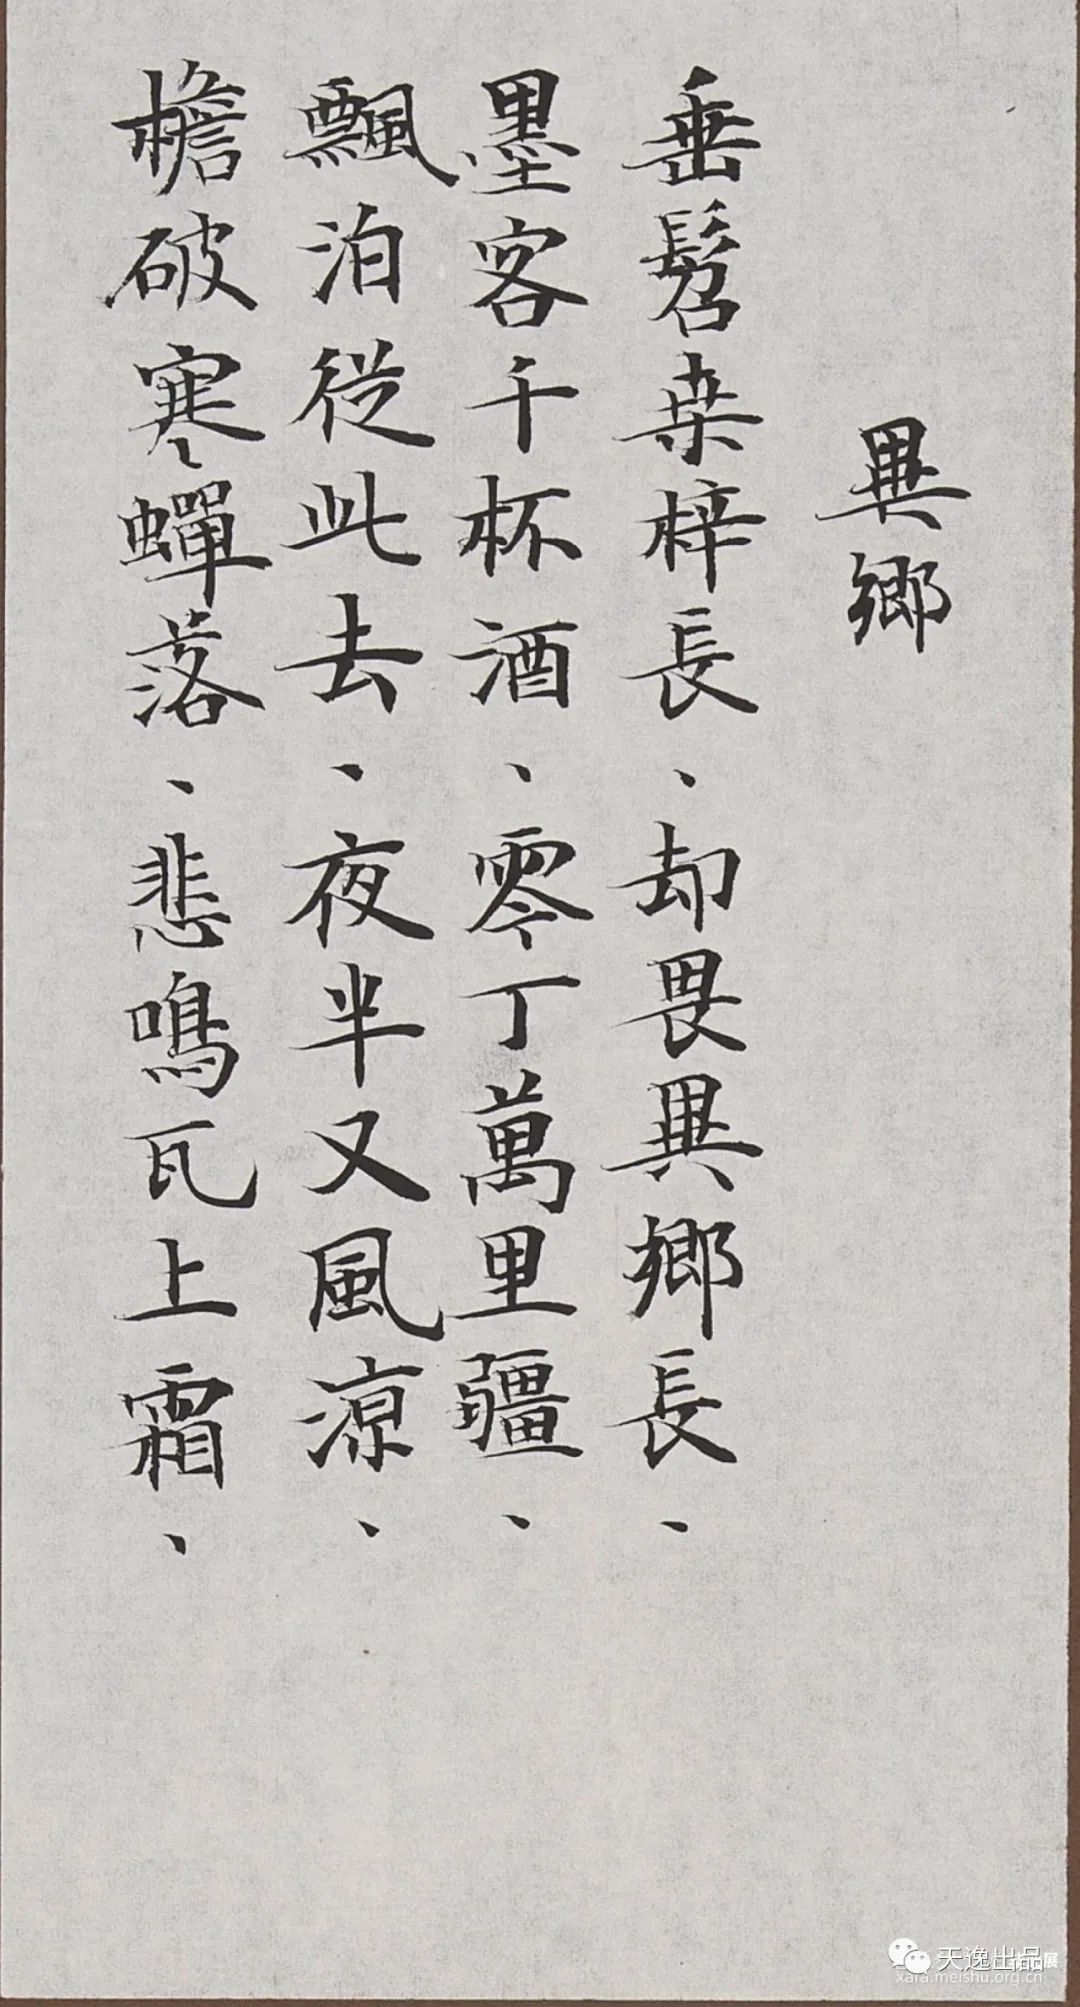 異鄉
垂髫桒梓長、却畏異鄉長、
墨客千杯酒、零丁萬里疆、
飄泊從此去、夜半又風涼、
檐破寒蟬落、悲鳴瓦上霜、
天逸出品
xara.meishu.org.cn